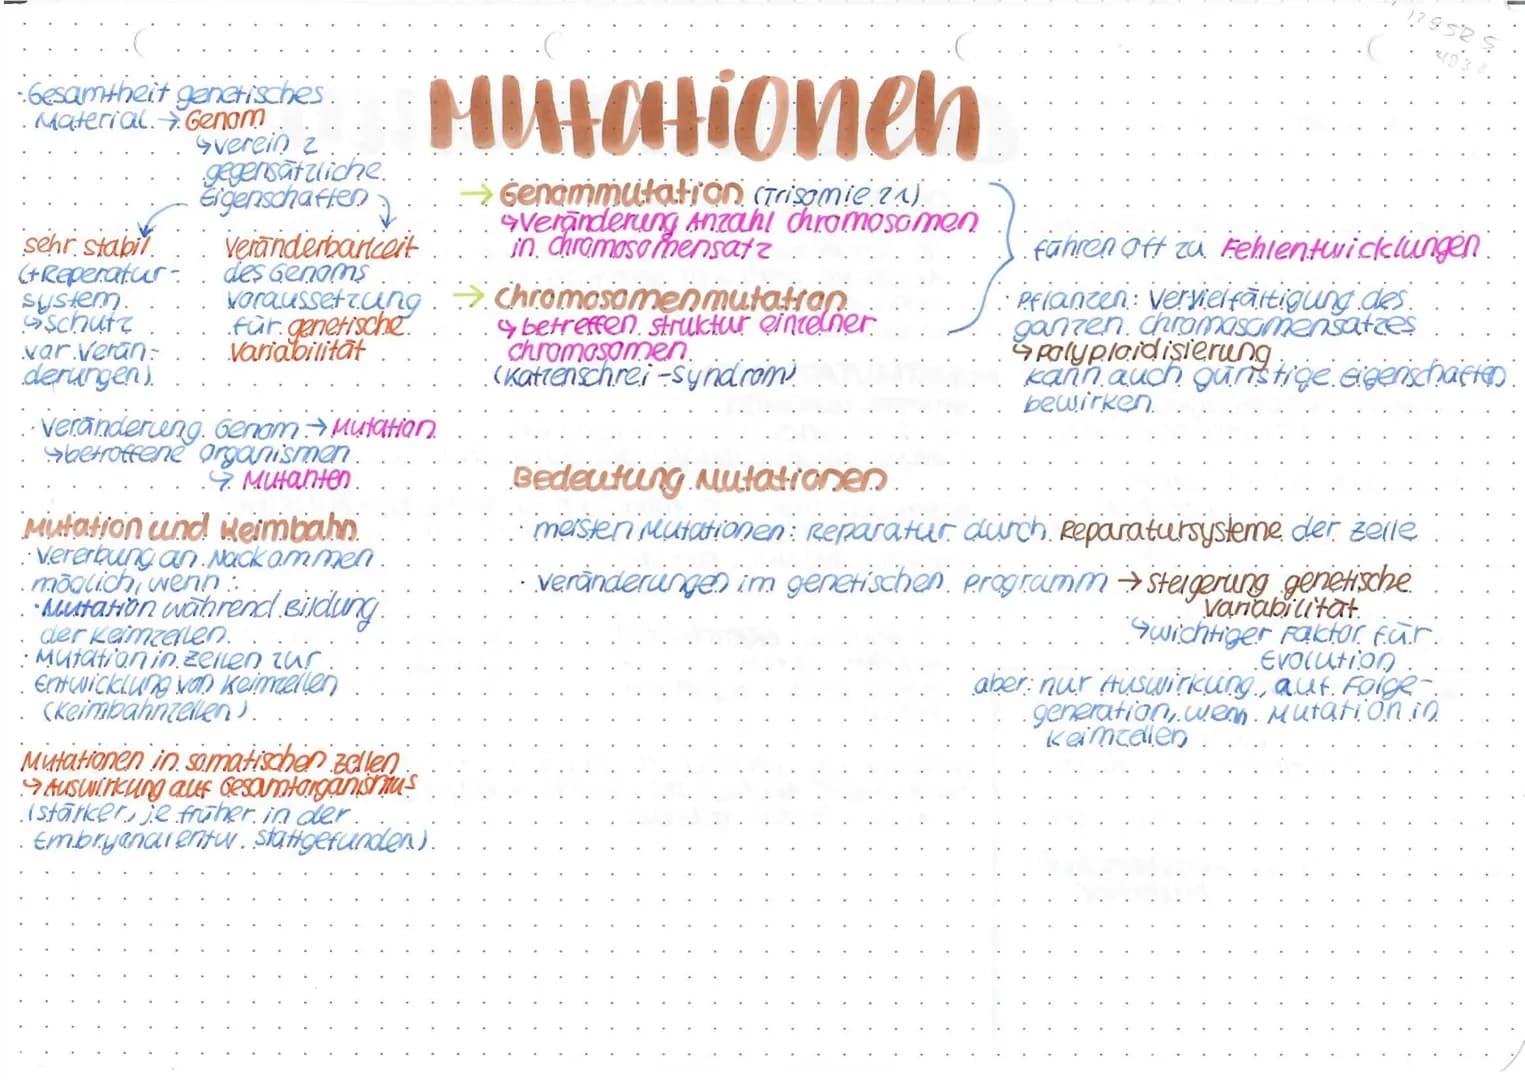 Mutationen
· Gesamtheit genetisches
Material → Genom
↳ verein 2
gegensätzliche
Eigenschaften
sehr stabil
(+Reperatur-
system
↳ Schutz
vor Verän-
derungen)
Veränderbarkeit
des Genoms
Voraussetzung
für genetische
Variabilität
Veränderung Genom → Mutation
↳ betroffene Organismen
↳ Mutanten
Mutation und Keimbahn
· Vererbung an Nackommen
möglich, wenn:
· Mutation während Bildung
der Keimzellen
· Mutation in Zellen zur
Entwicklung von Keimzellen
(Keimbahnzellen)
Mutationen in somatischen Zellen
↳ Auswirkung auf Gesamtorganismus
(stärker, je früher in der
Embryonalentw. stattgefunden)
→ Genommutation (Trisomie 21)
↳ Veränderung Anzahl Chromosomen
in Chromosomensatz
→ Chromosomenmutation
↳ betreffen Struktur einzelner
Chromosomen
(Katzenschrei-Syndrom)
führen oft zu Fehlentwicklungen
· Pflanzen: Vervielfältigung des
ganzen Chromosomensatzes
↳ Polyploidisierung
kann auch günstige Eigenschaften
bewirken
Bedeutung Mutationen
· meisten Mutationen: Reparatur durch Reparatursysteme der Zelle
· Veränderungen im genetischen Programm → Steigerung genetische
Variabilität
↳ wichtiger Faktor für
Evolution
aber: nur Auswirkung, auf Folge-
generation, wenn Mutation in
Keimzellen